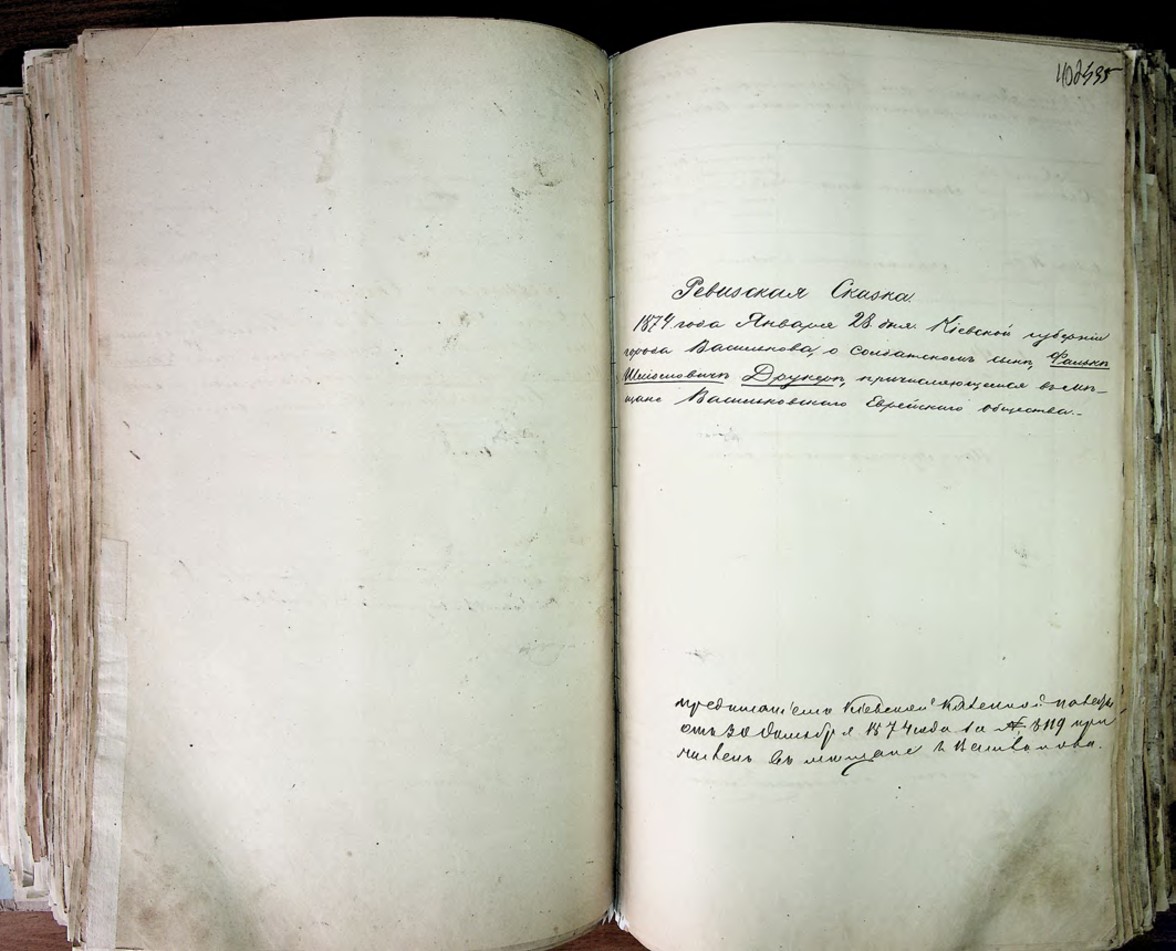 Ревизская Сказка
1874 года Января 28 дня. Кіевской губерніи
города Василькова, о солдатскомъ сынѣ, Фалькѣ
Шліомовичѣ Друкерѣ, причисляющемся въ мѣ-
щане Васильковскаго Еврейскаго общества.-
предписаніемъ Кіевской Казенной палаты
отъ 30 1874 года за № 8119 при
численъ въ мещане г. Василькова.